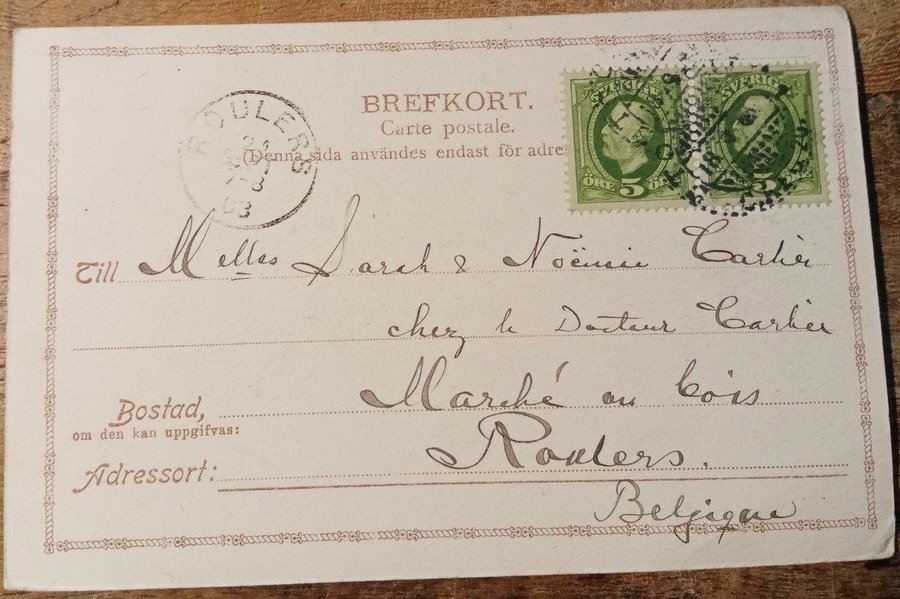 BREFKORT.
Carte postale.
(Denna sida användes endast för adre
ROULERS
8
03
SVERIGE
SVERIGE
5
ÖRE 5 ÖRE
Till Melles Sarah & Noëmie Carlier
chez le Docteur Carlier
Bostad, Marché au bois
om den kan uppgifvas:
Adressort: Roulers.
Belgique